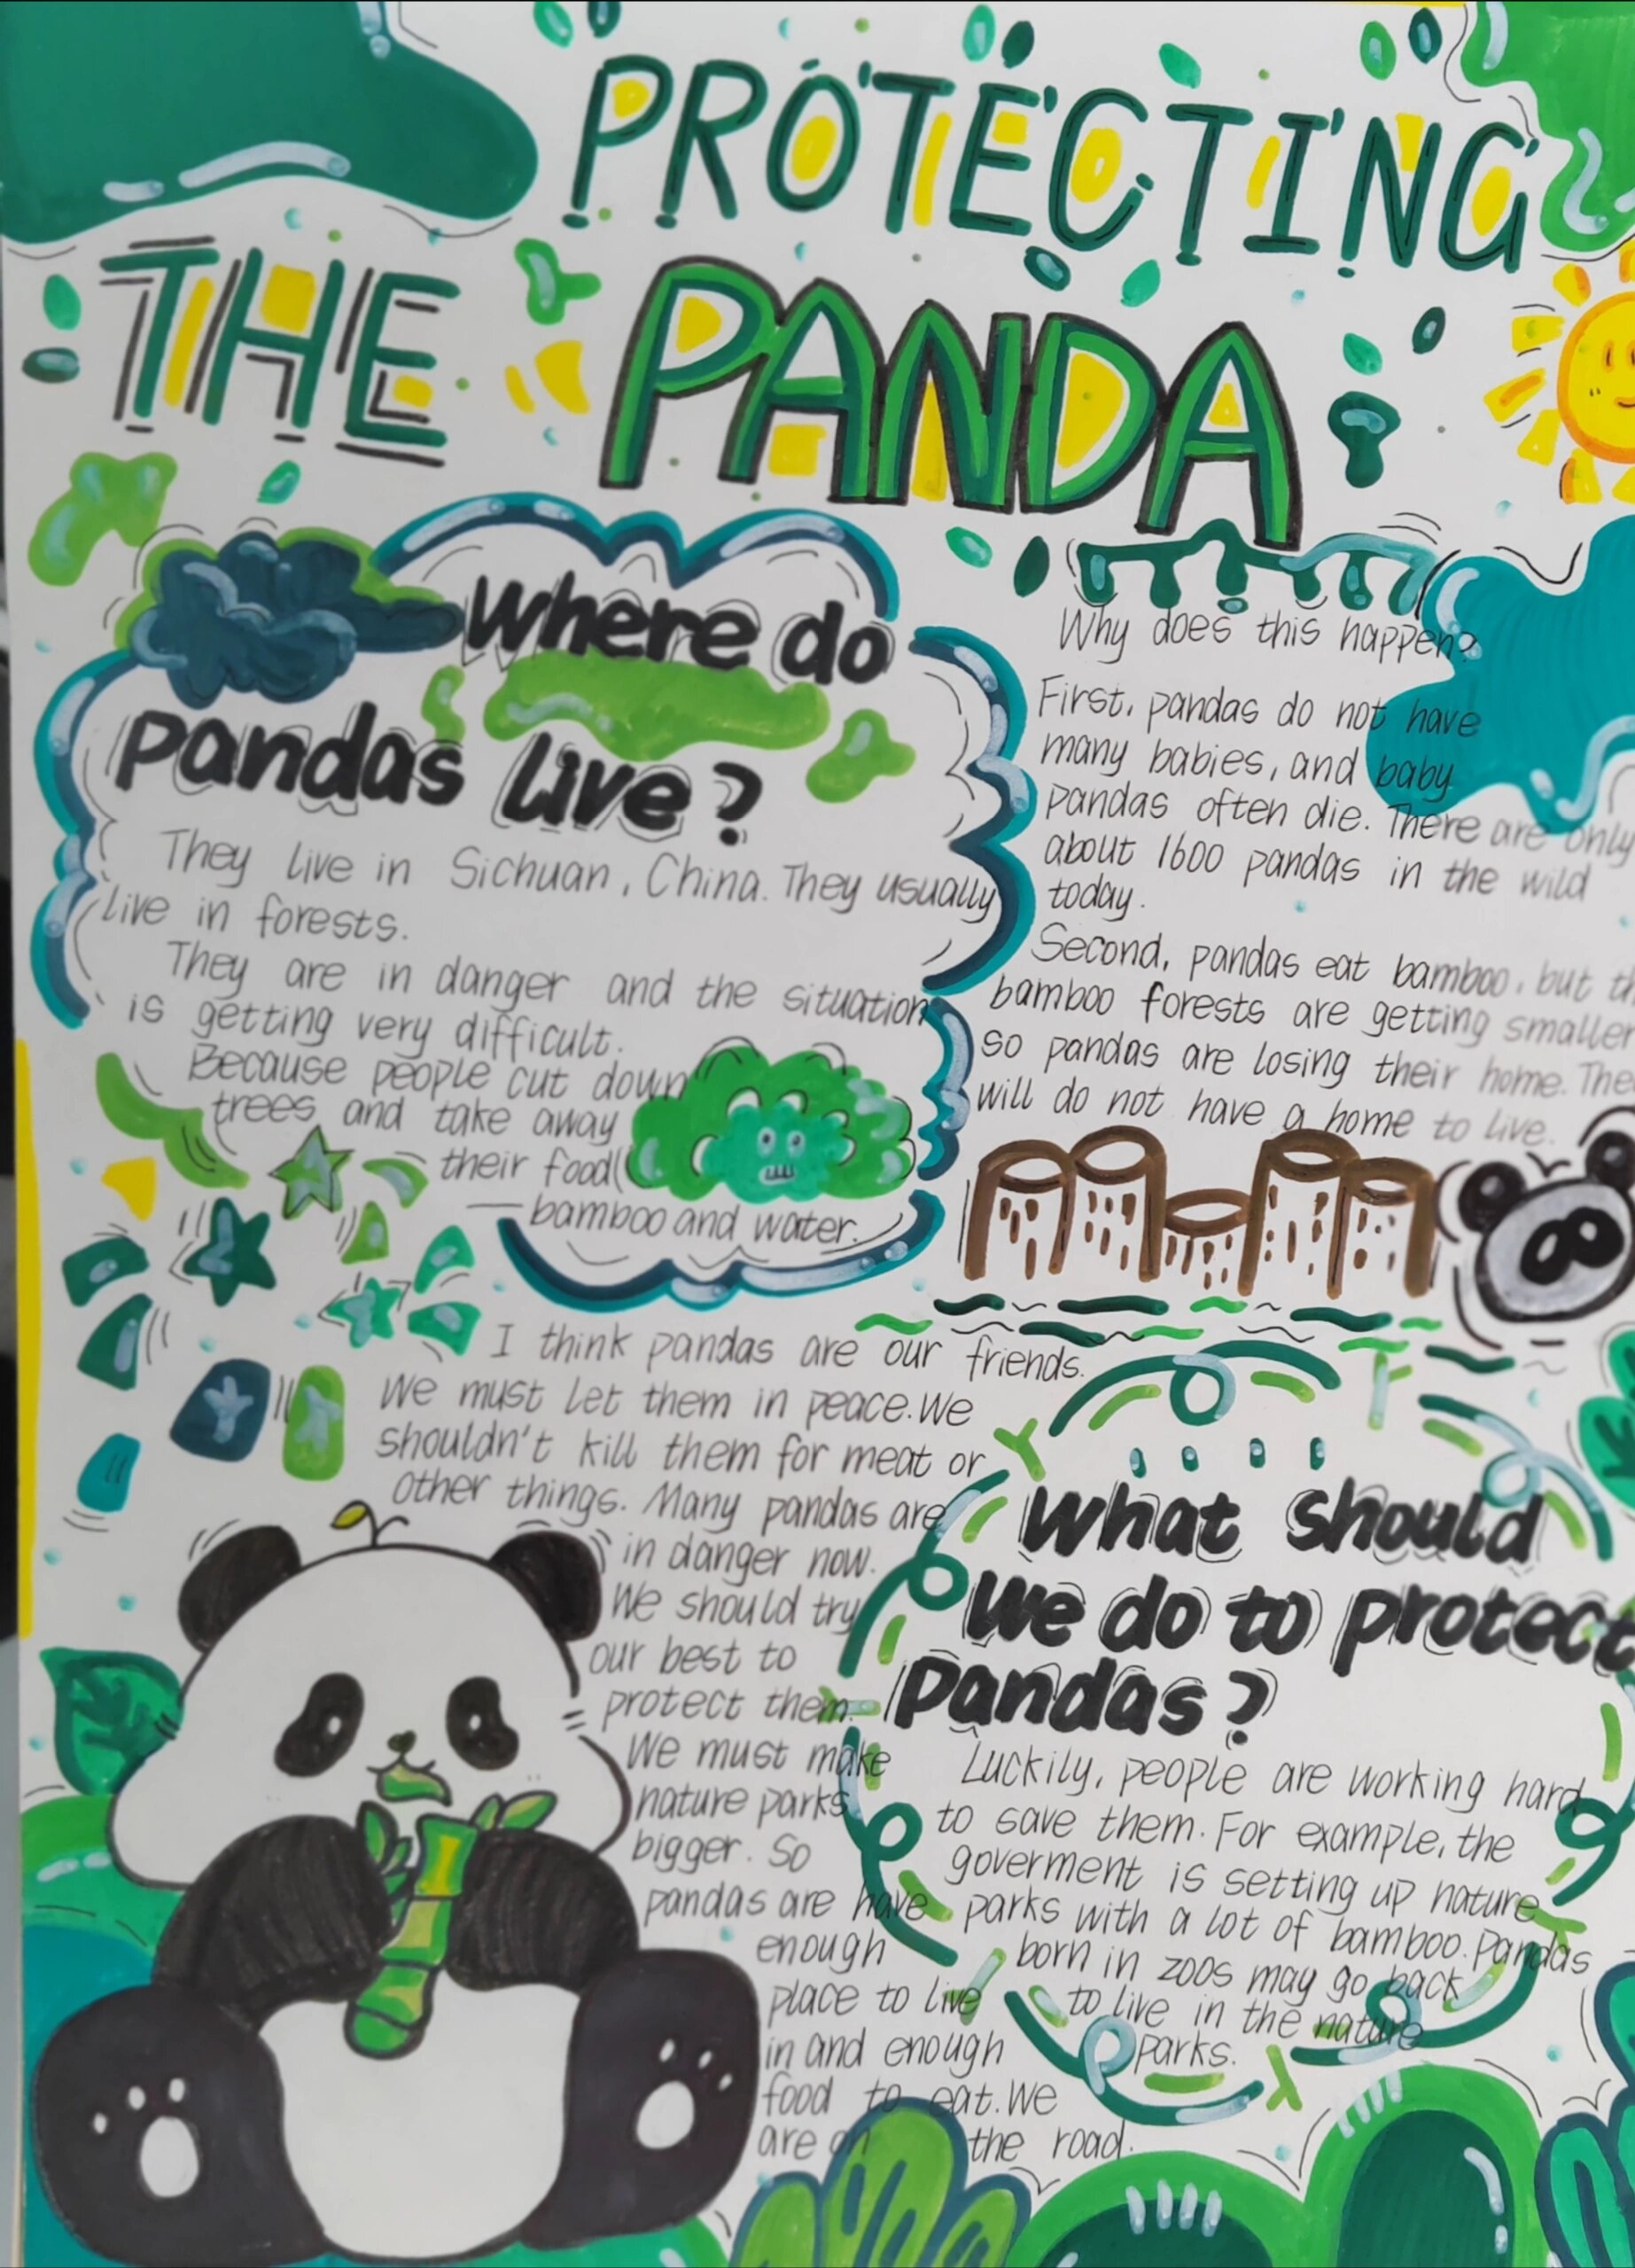 PROTECTING
THE PANDA
Where do
pandas live?
They live in Sichuan, China. They usually
live in forests.
They are in danger and the situation
is getting very difficult.
Because people cut down
trees and take away
their food(
—bamboo and water.
Why does this happen?
First, pandas do not have
many babies, and baby
pandas often die. There are only
about 1600 pandas in the wild
today.
Second, pandas eat bamboo, but
bamboo forests are getting smaller
so pandas are losing their home.
will do not have a home to live.
I think pandas are our friends.
We must let them in peace. We
shouldn't kill them for meat or
other things. Many pandas are
in danger now.
We should try
our best to
protect them.
We must make
nature parks
bigger. So
pandas are have
enough
place to live
in and enough
food to eat. We
are on the road.
What should
we do to protect
pandas?
Luckily, people are working hard
to save them. For example, the
goverment is setting up nature
parks with a lot of bamboo. Pandas
born in zoos may go back
to live in the nature
parks.